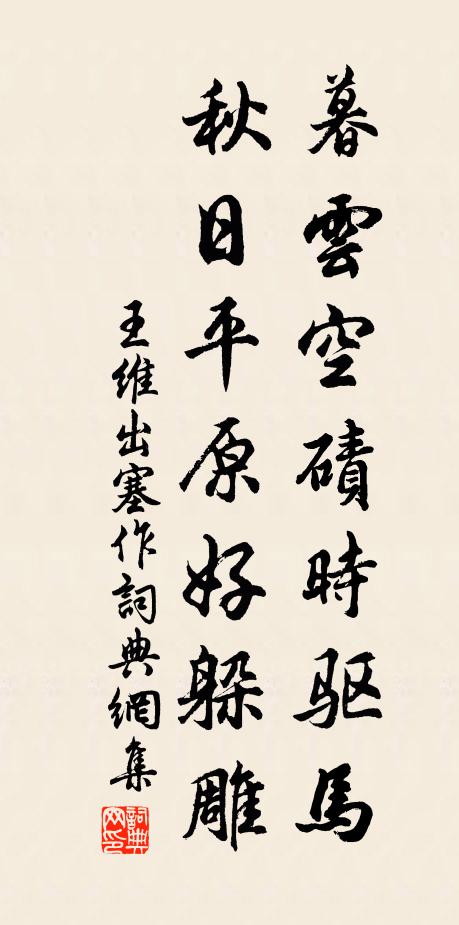 暮雲空磧時驱馬
秋日平原好躲雕
王維出塞作詞典網集
詞典
网印